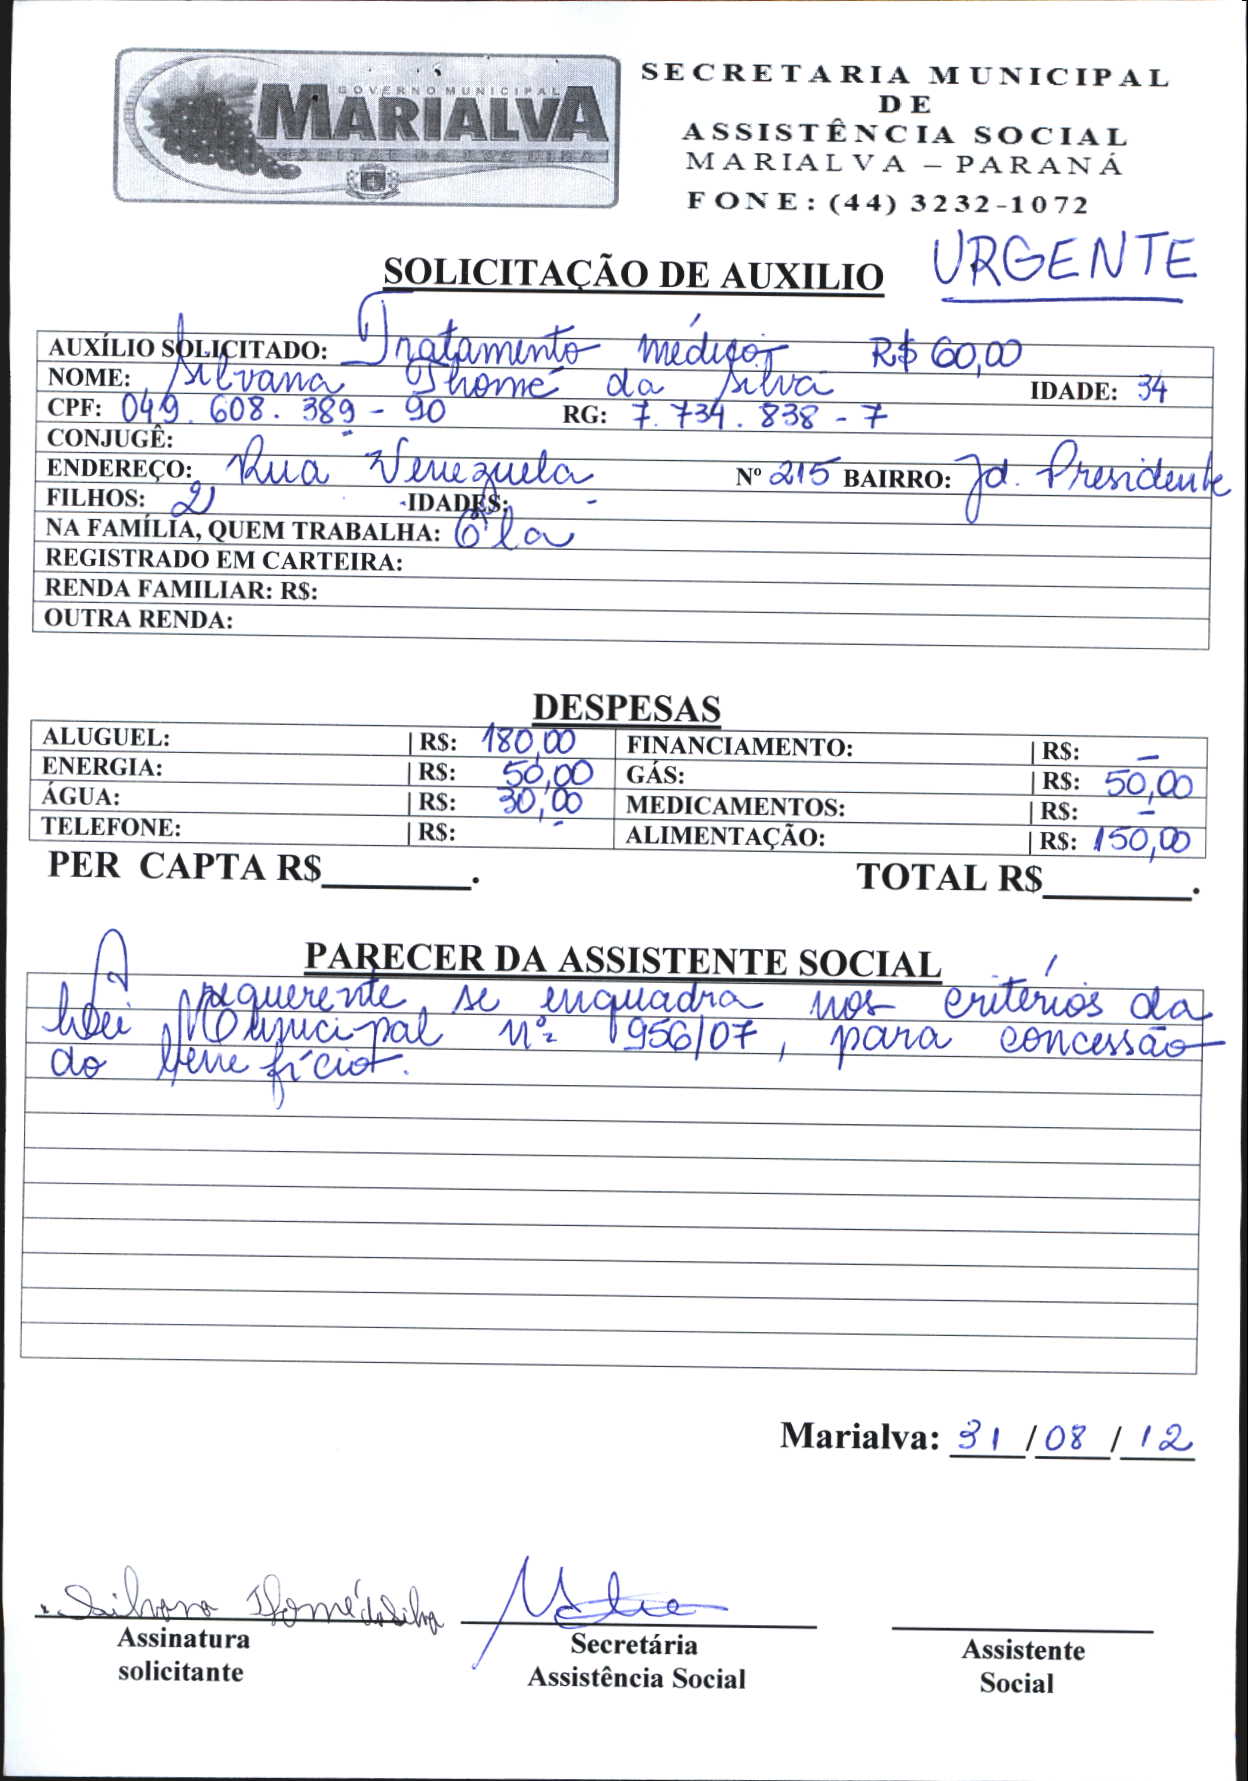 GOVERNO MUNICIPAL
MARIALVA
CAPITAL DA UVA FINA
SECRETARIA MUNICIPAL
DE
ASSISTÊNCIA SOCIAL
MARIALVA – PARANÁ
FONE: (44) 3232-1072
URGENTE
SOLICITAÇÃO DE AUXILIO
AUXÍLIO SOLICITADO: Tratamento médico R$ 60,00
NOME: Silvana Thomé da Silva IDADE: 34
CPF: 049.608.389-90 RG: 7.734.838-7
CONJUGÊ: -
ENDEREÇO: Rua Venezuela Nº 215 BAIRRO: Jd. Presidente
FILHOS: 2 IDADES: -
NA FAMÍLIA, QUEM TRABALHA: Ela
REGISTRADO EM CARTEIRA:
RENDA FAMILIAR: R$:
OUTRA RENDA:
DESPESAS
ALUGUEL: | R$: 180,00 FINANCIAMENTO: | R$: -
ENERGIA: | R$: 50,00 GÁS: | R$: 50,00
ÁGUA: | R$: 30,00 MEDICAMENTOS: | R$: -
TELEFONE: | R$: - ALIMENTAÇÃO: | R$: 150,00
PER CAPTA R$________. TOTAL R$________.
PARECER DA ASSISTENTE SOCIAL
A requerente se enquadra nos critérios da
Lei Municipal nº 956/07, para concessão
do benefício.
Marialva: 31/08/12
Silvana Thomé da Silva
Assinatura Secretária Assistente
solicitante Assistência Social Social